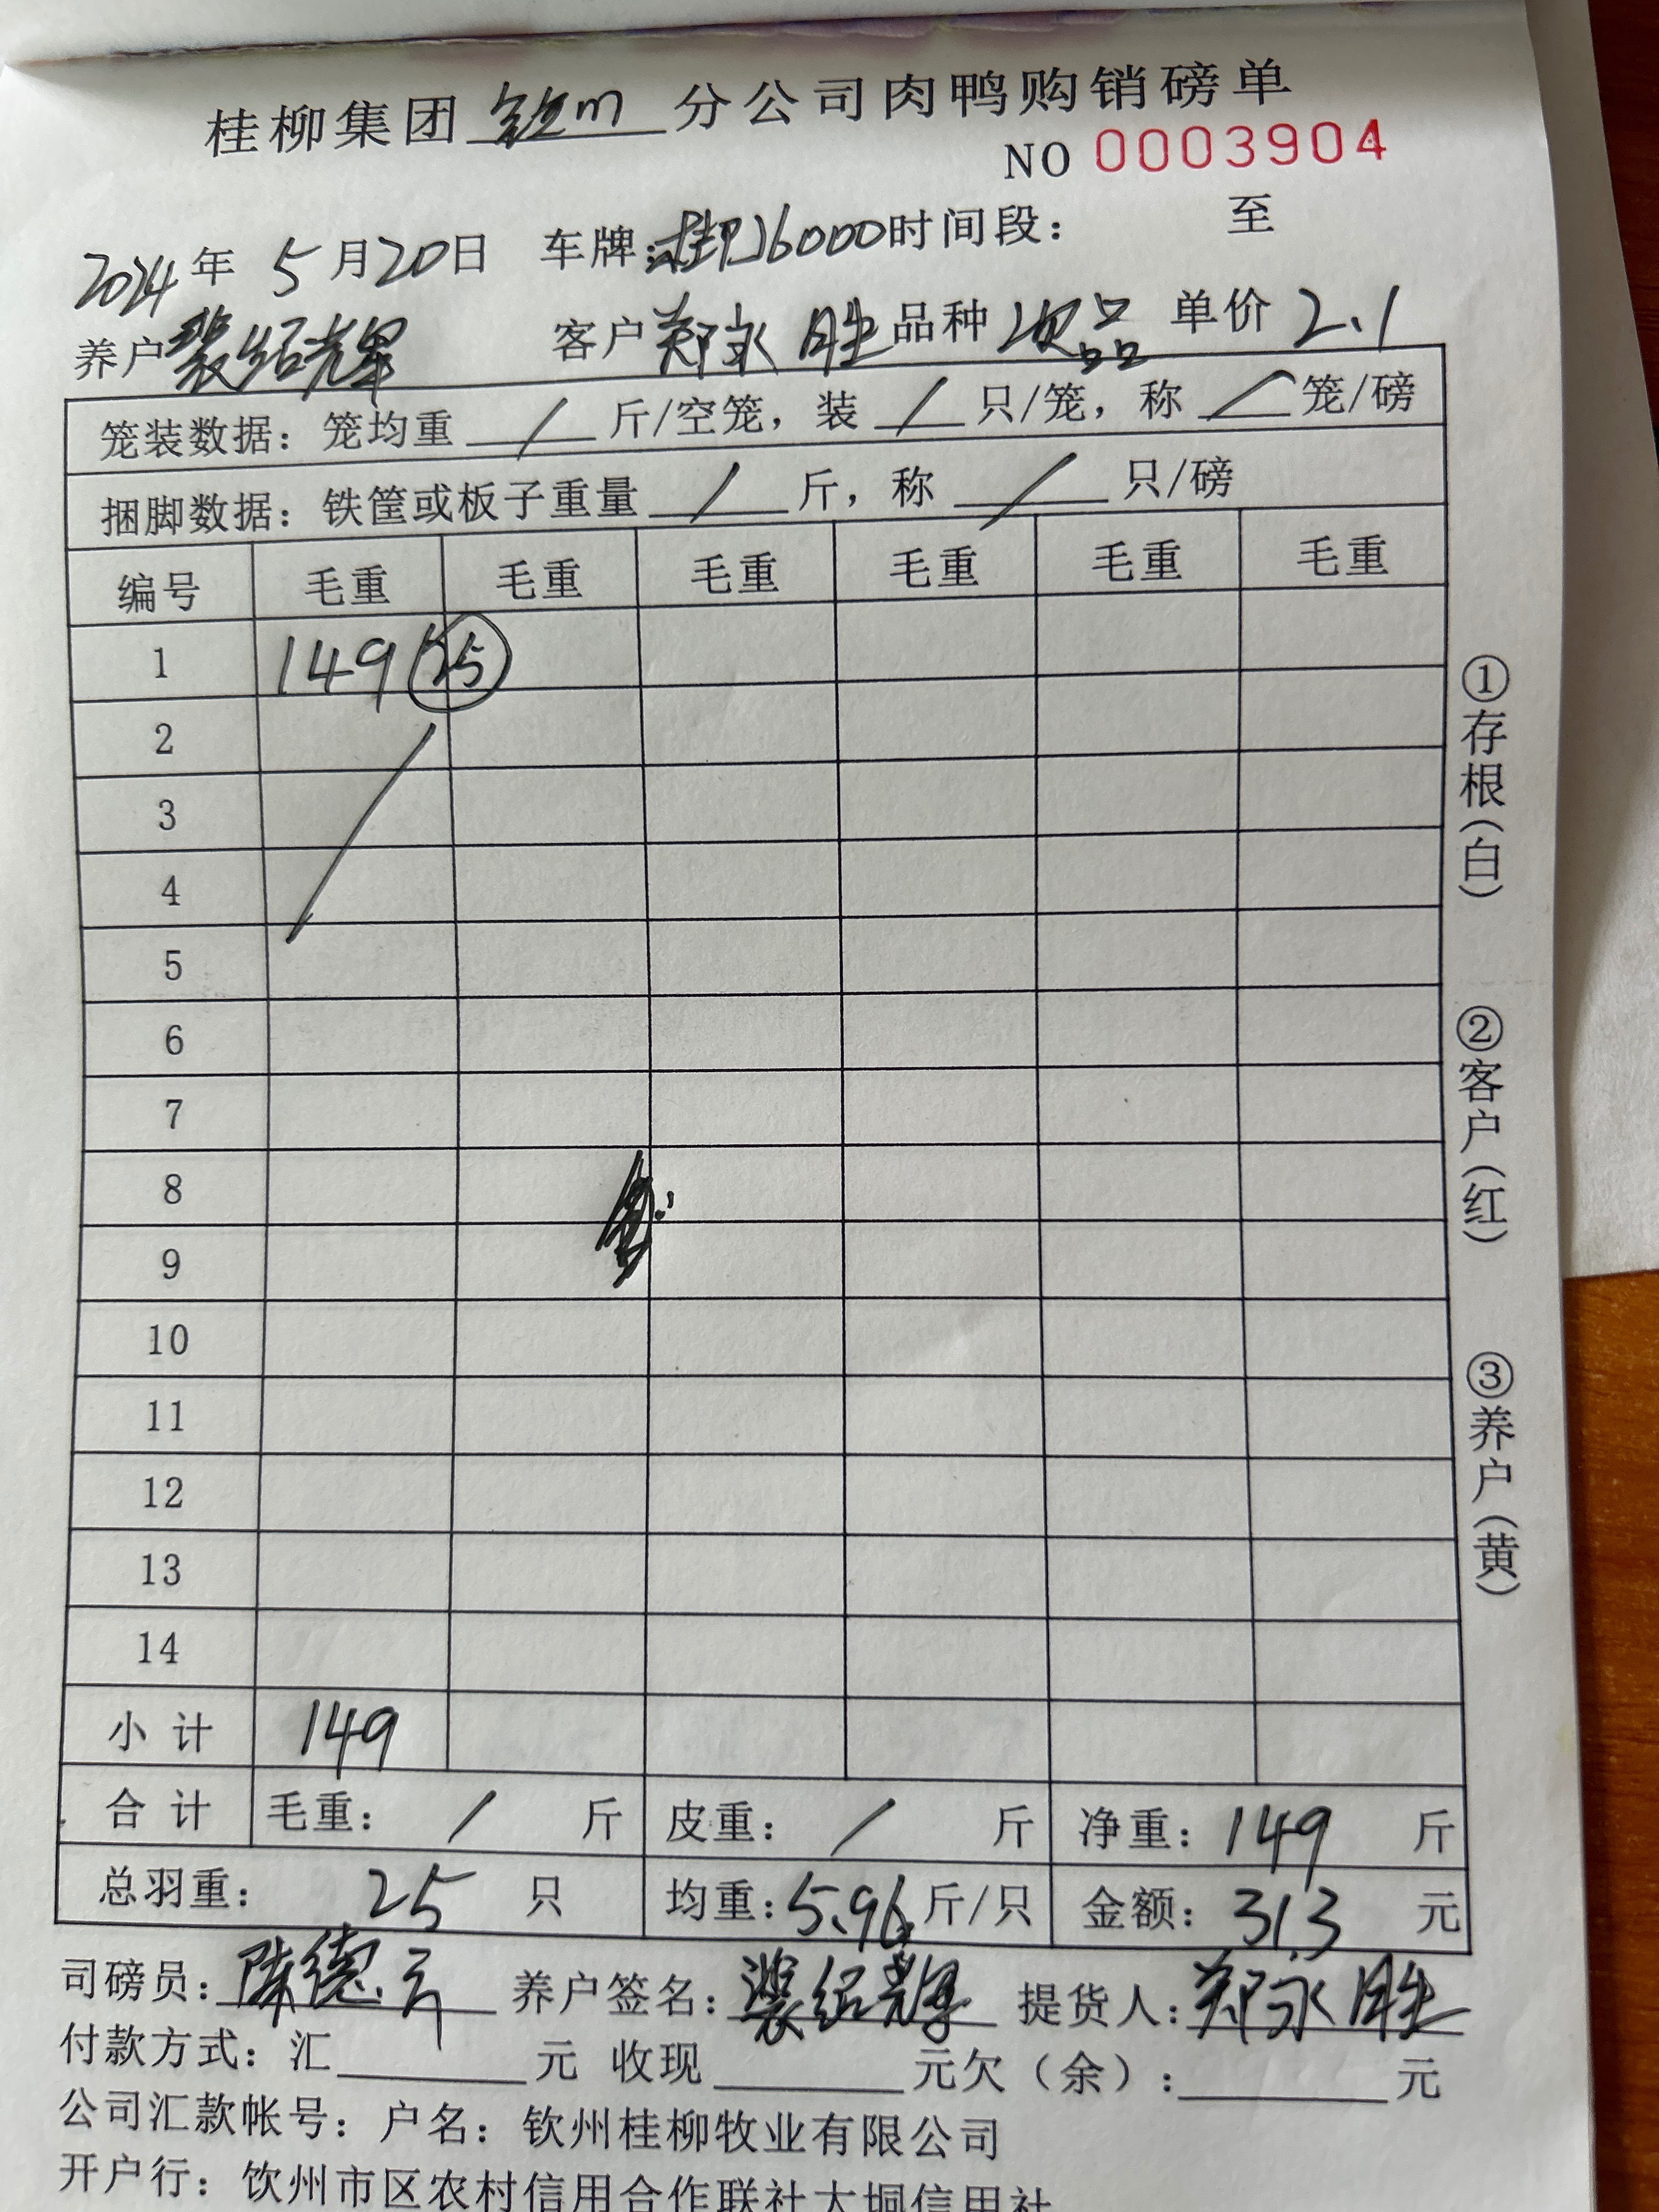 桂柳集团钦州分公司肉鸭购销磅单
NO 0003904
2024年5月20日 车牌:桂PJ6000时间段: 至
养户裴绍辉 客户郑永胜品种次品 单价2.1
笼装数据:笼均重/斤/空笼,装/只/笼,称/笼/磅
捆脚数据:铁筐或板子重量/斤,称/只/磅
编号 毛重 毛重 毛重 毛重 毛重 毛重
1 149 25
2
3
4
5
6
7
8
9
10
11
12
13
14
小计 149
合计 毛重: / 斤 皮重: / 斤 净重: 149 斤
总羽重: 25 只 均重:5.96斤/只 金额: 313 元
司磅员:陈德 养户签名:裴绍辉 提货人:郑永胜
付款方式:汇 元 收现 元欠(余): 元
公司汇款帐号:户名:钦州桂柳牧业有限公司
开户行:钦州市区农村信用合作联社大垌信用社
①存根(白)
②客户(红)
③养户(黄)